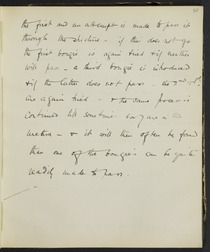 the first and an attempt is made to pass it
through the stricture – if this does not go
the first bougie is again tried & if neither
will pass – a third bougie is introduced
& if the latter does not pass – the 2nd
are again tried – & the same process is
continued till sometimes
urethra – & it will then often be found
that one of the bougies can be quite
readily made to pass.